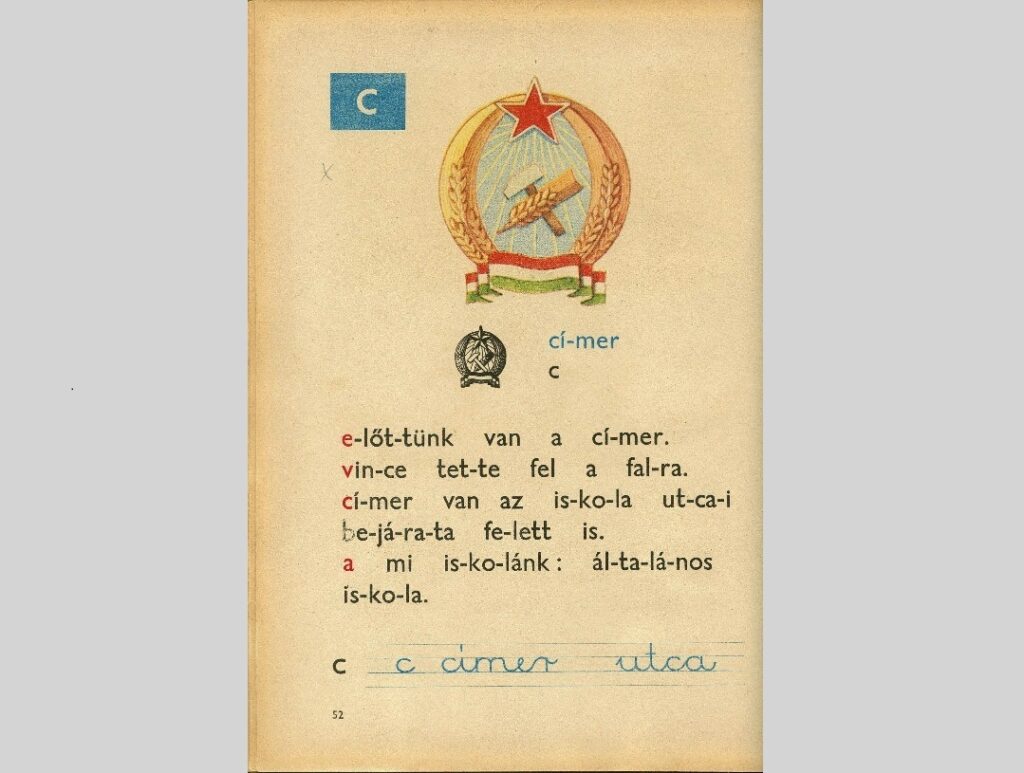 c
cí-mer
c
e-lőt-tünk van a cí-mer.
vin-ce tet-te fel a fal-ra.
cí-mer van az is-ko-la ut-ca-i
be-já-ra-ta fe-lett is.
a mi is-ko-lánk: ál-ta-lá-nos
is-ko-la.
c c címer utca
52